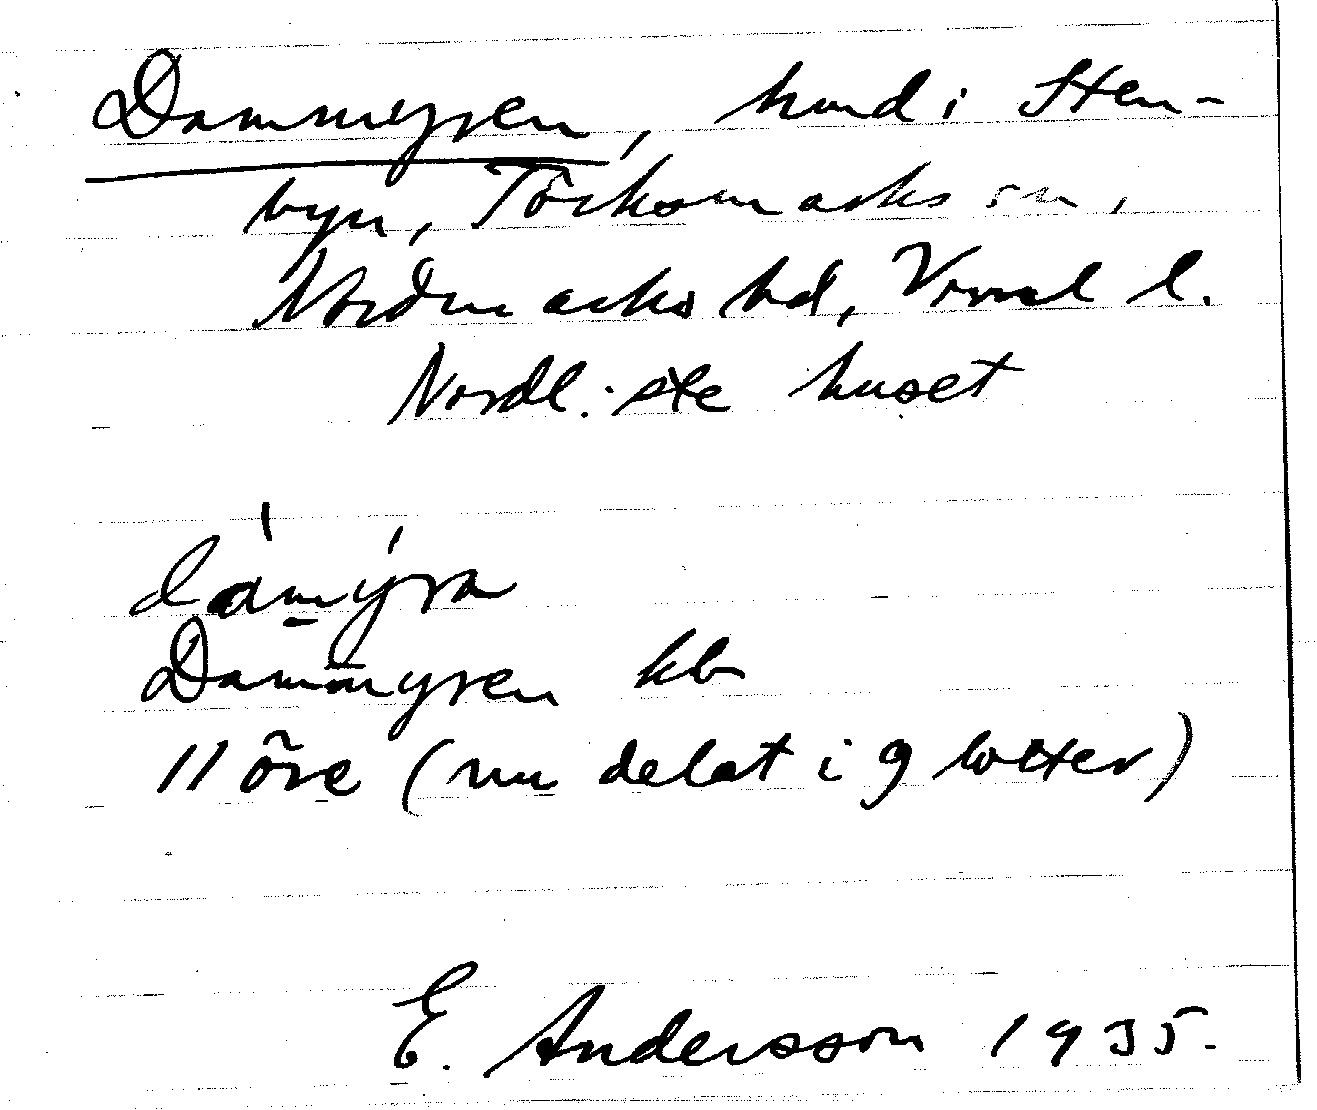 Dammyren, hmd i Sten-
byn, Töcksmarks sn,
Nordmarks hd, Vrml l.
Nordl.ste huset
dámýra
Dammyren kb
11 öre (nu delat i 9 lotter)
E. Andersson 1935.